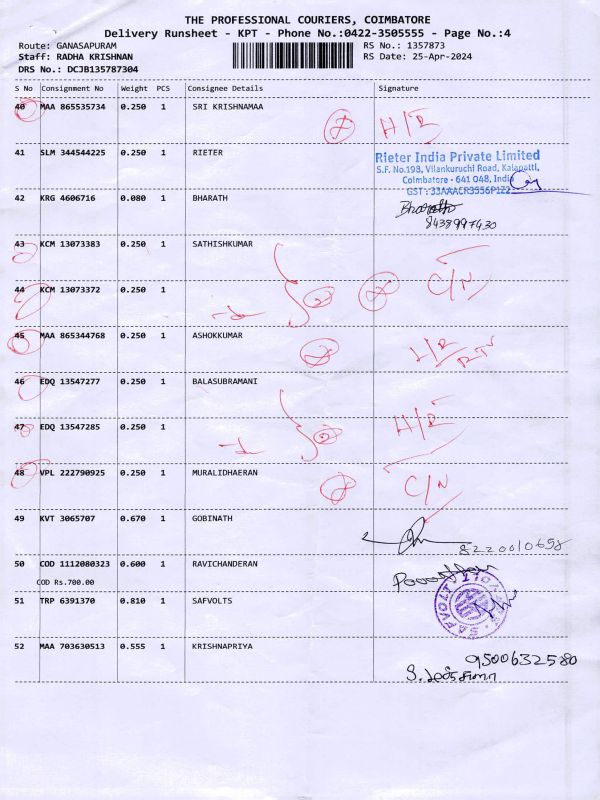 THE PROFESSIONAL COURIERS, COIMBATORE
Delivery Runsheet - KPT - Phone No.:0422-3505555 - Page No.:4
Route: GANASAPURAM RS No.: 1357873
Staff: RADHA KRISHNAN RS Date: 25-Apr-2024
DRS No.: DCJB135787304
S No Consignment No Weight PCS Consignee Details Signature
40 MAA 865535734 0.250 1 SRI KRISHNAMAA
H/R
41 SLM 344544225 0.250 1 RIETER
Rieter India Private Limited
S.F. No.198, Vilankuruchi Road, Kalapatti,
Coimbatore - 641 048, India
GST : 33AAACR3556P1Z2
42 KRG 4606716 0.080 1 BHARATH
8438997430
43 KCM 13073383 0.250 1 SATHISHKUMAR
C/N
44 KCM 13073372 0.250 1
45 MAA 865344768 0.250 1 ASHOKKUMAR
46 EDQ 13547277 0.250 1 BALASUBRAMANI
H/R
47 EDQ 13547285 0.250 1
48 VPL 222790925 0.250 1 MURALIDHAERAN
C/N
49 KVT 3065707 0.670 1 GOBINATH
8220010658
50 COD 1112080323 0.600 1 RAVICHANDERAN
COD Rs.700.00
51 TRP 6391370 0.810 1 SAFVOLTS
52 MAA 703630513 0.555 1 KRISHNAPRIYA
9500632580